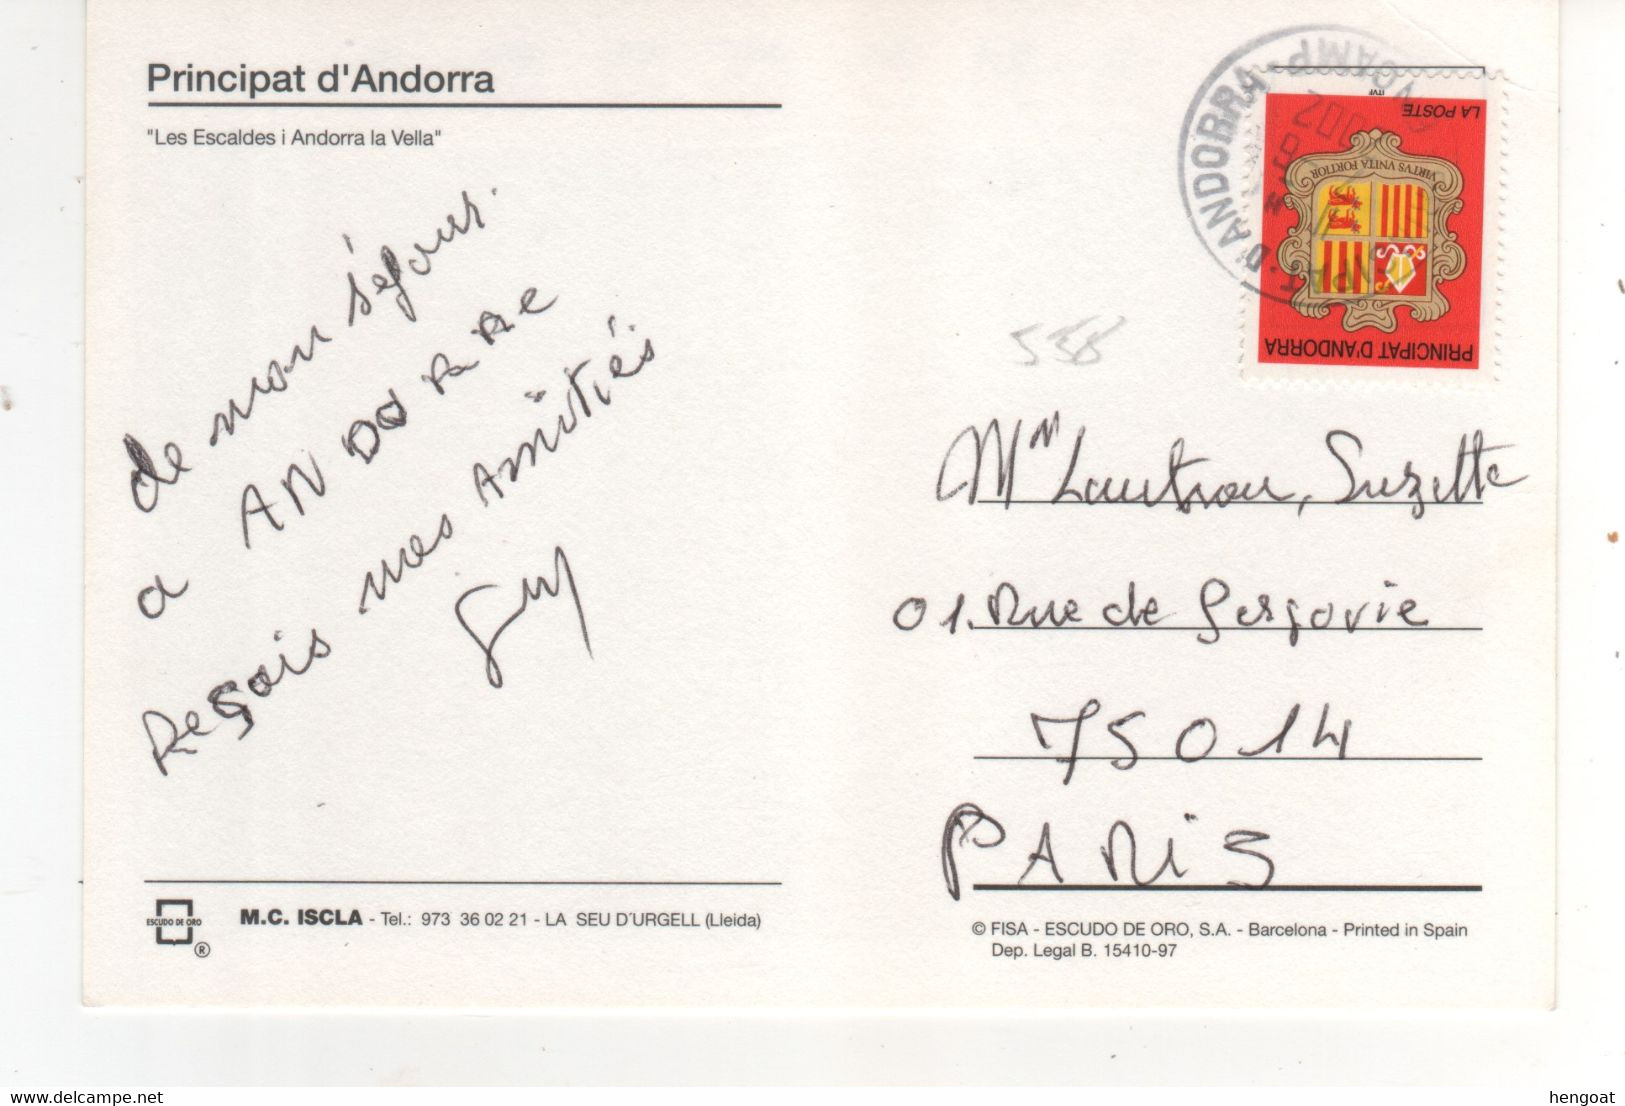 Principat d'Andorra
"Les Escaldes i Andorra la Vella"
de mon séjour.
a ANDORRE
Reçois mes Amitiés
Guy
ESCUDO DE ORO
®
M.C. ISCLA - Tel.: 973 36 02 21 - LA SEU D'URGELL (Lleida)
D'ANDORRA
PRINCIPAT D'ANDORRA
VIRTVS VNITA FORTIOR
LA POSTE
ITVF
538
Mm Lautrou, Suzette
01. Rue de Gergovie
75014
PARiS
© FISA - ESCUDO DE ORO, S.A. - Barcelona - Printed in Spain
Dep. Legal B. 15410-97
hengoat